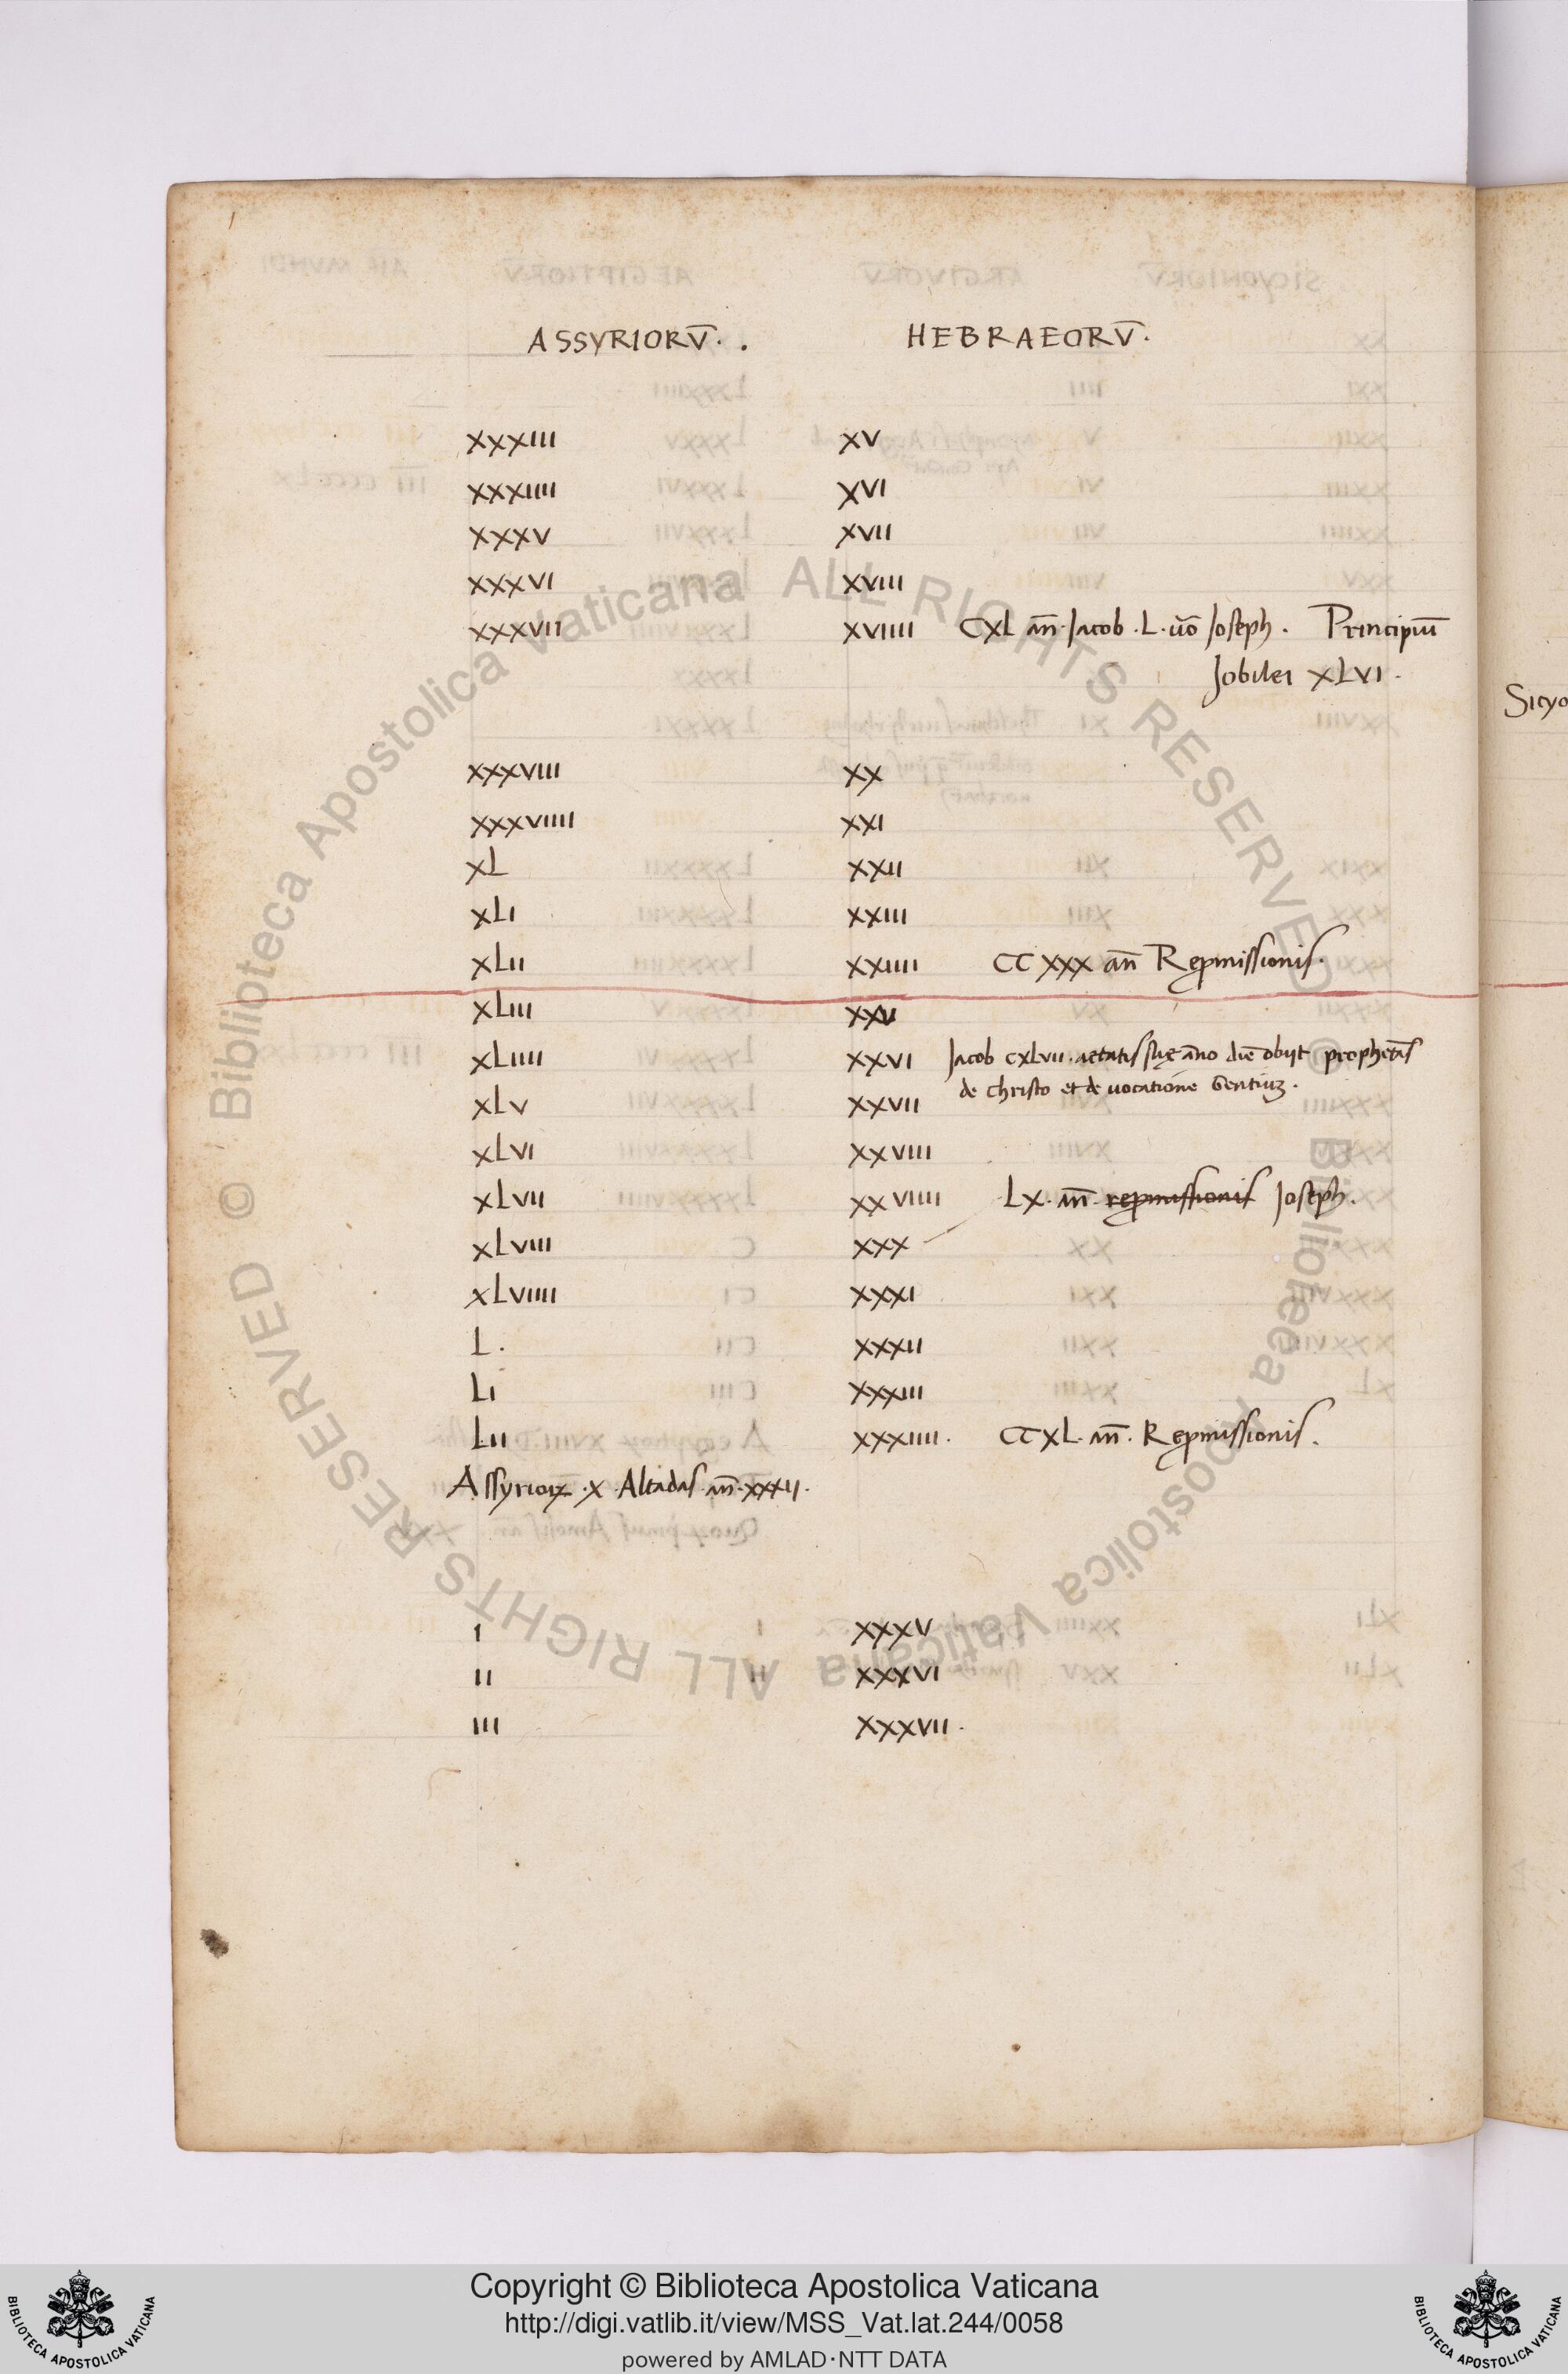 ASSYRIORŪ. . HEBRAEORŪ.
XXXIII XV
XXXIIII XVI
XXXV XVII
XXXVI XVIII
XXXVII XVIIII CXL an̄. Jacob. L. uō Joseph. Principiū
Jobilei XLVI.
Sicyo
XXXVIII XX
XXXVIIII XXI
XL XXII
XLI XXIII
XLII XXIIII CCXXX an̄ Repmissionis.
XLIII XXV
XLIIII XXVI Jacob CXLVII. aetatis suę āno diē obijt prophetās
de Christo et de uocatione Gentiuꝫ.
XLV XXVII
XLVI XXVIII
XLVII XXVIIII LX. an̄. repmissionis Joseph.
XLVIII XXX
XLVIIII XXXI
L. XXXII
LI XXXIII
LII XXXIIII. CCXL. an̄. Repmissionis.
Assyrioꝝ. X. Altadas. an̄. XXXII.
I XXXV
II XXXVI
III XXXVII.
© Biblioteca Apostolica Vaticana ALL RIGHTS RESERVED © Biblioteca Apostolica Vaticana ALL RIGHTS RESERVED
Copyright © Biblioteca Apostolica Vaticana
http://digi.vatlib.it/view/MSS_Vat.lat.244/0058
powered by AMLAD·NTT DATA
BIBLIOTECA APOSTOLICA VATICANA
BIBLIOTECA APOSTOLICA VATICANA